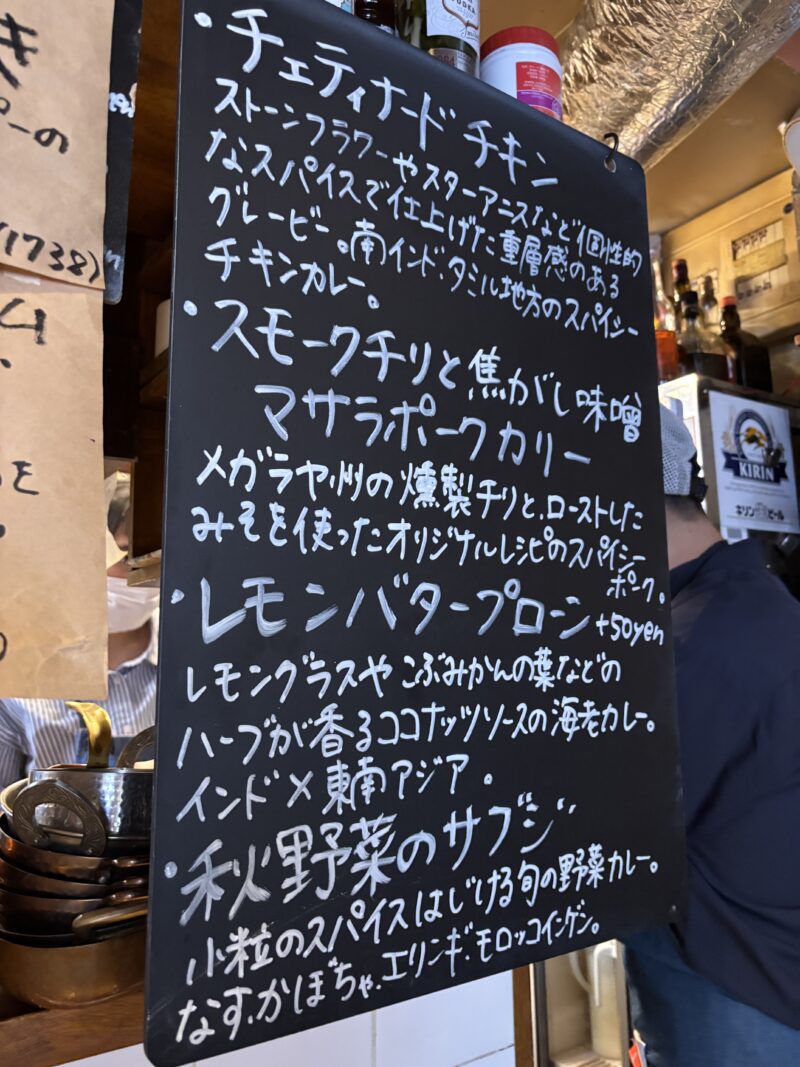 ・チェティナード チキン
ストーンフラワーやスターアニスなど個性的
なスパイスで仕上げた重層感のある
グレービー。南インド、タミル地方のスパイシー
チキンカレー。
・スモークチリと焦がし味噌
マサラポークカリー
メガラヤ州の燻製チリと、ローストした
みそを使ったオリジナルレシピのスパイシー
ポーク。
・レモンバタープローン +50yen
レモングラスやこぶみかんの葉などの
ハーブが香るココナッツソースの海老カレー。
インド×東南アジア。
・秋野菜のサブジ
小粒のスパイスはじける旬の野菜カレー。
なす、かぼちゃ、エリンギ、モロッコインゲン。
き
ーの
(1738)
ム
を
KIRIN
キリンビール
VODKA